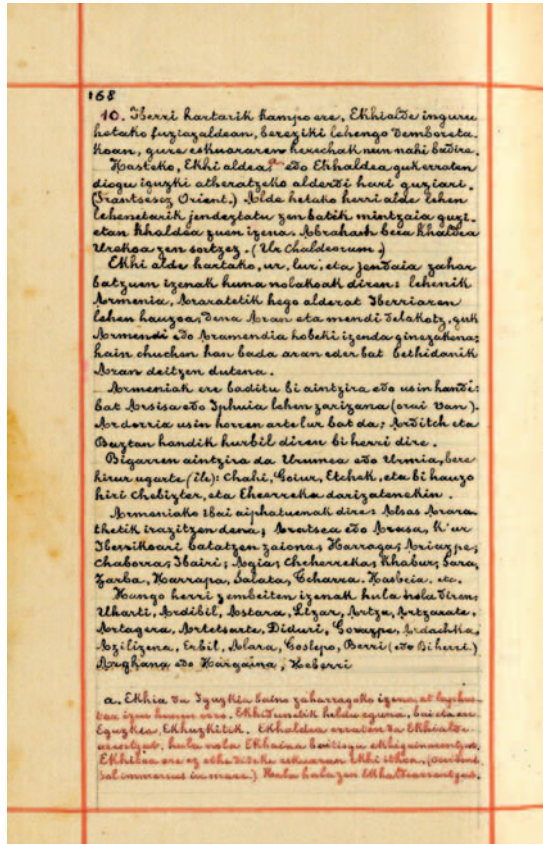 168
10. Iberri hartarik kampo ere, Ekhialde inguru
hetako fuziazaldean, bereziki lehengo demboreta-
koan, gure eskuararen herechak nun nahi badire.
Hasteko, Ekhi aldea, a edo Ekhaldea guk erraten
diogu iguzki atheratzeko alderdi hari guziari.
(Frantsesez Orient.) Alde hetako herri alde lehen
lehenetarik jendeztatu zen batik mintzaia guzi-
etan Khaldea zuen izena. Abraham bera Khaldea
Urekoa zen sortzez. (Ur Chaldeorum.)
Ekhi alde hartako, ur, lur, eta jendaia zahar
batzuen izenak huna nolakoak diren: lehenik
Armenia, Araratetik hego alderat Iberriaren
lehen hauzoa, dena Aran eta mendi delakotz, guk
Armendi edo Aramendia hobeki izenda ginezakena;
hain chuchen han bada aran eder bat bethidanik
Aran deitzen dutena.
Armeniak ere baditu bi aintzira edo usin handi:
bat Arsisa edo Iphuia lehen zarizana (orai Van).
Ardorria usin horren arte lur bat da; Arditch eta
Baztan handik hurbil diren bi herri dire.
Bigarren aintzira da Urumea edo Urmia, bere
hirur ugarte (ile): Chahi, Goiur, Etchek, eta bi hauzo
hiri Chebizter, eta Eheerreka darizatenekin.
Armeniako ibai aiphatuenak dire: Alsas Arara-
thetik irazitzen dena; Aratsea edo Arasa, K'ur
Iberrikoari batatzen zaiona; Harraga; Ariazpe;
Chaborra; Ibairi; Agia; Chcherreka; Khabur; Sara,
Zarba, Harrapa, Salata, Echarra, Hasbeia. etc.
Hango herri zembeiten izenak hula nola diren:
Uharti, Ardibil, Astara, Lizar, Artza, Artzarate,
Artagera, Artetsarte, Diduri, Govazpe, Ardachka,
Azilizena, Erbil, Alara, Goslepo, Berri (edo Biherri.)
Arghana edo Hargaina; Heberri
a. Ekhia da Iguzkia baino zaharragoko izena,
izen hunen ere. Ekhidunetik heldu eguna, bai eta ere
Eguzkia, Ekhuzkitik. Ekhaldea erraten da Ekhialde
hula nola Ekhaina
Ekhitea ere ez ethe diteke eskuaran Ekhi
sol immersus in mare.) Hula hala zen Ekhaldea